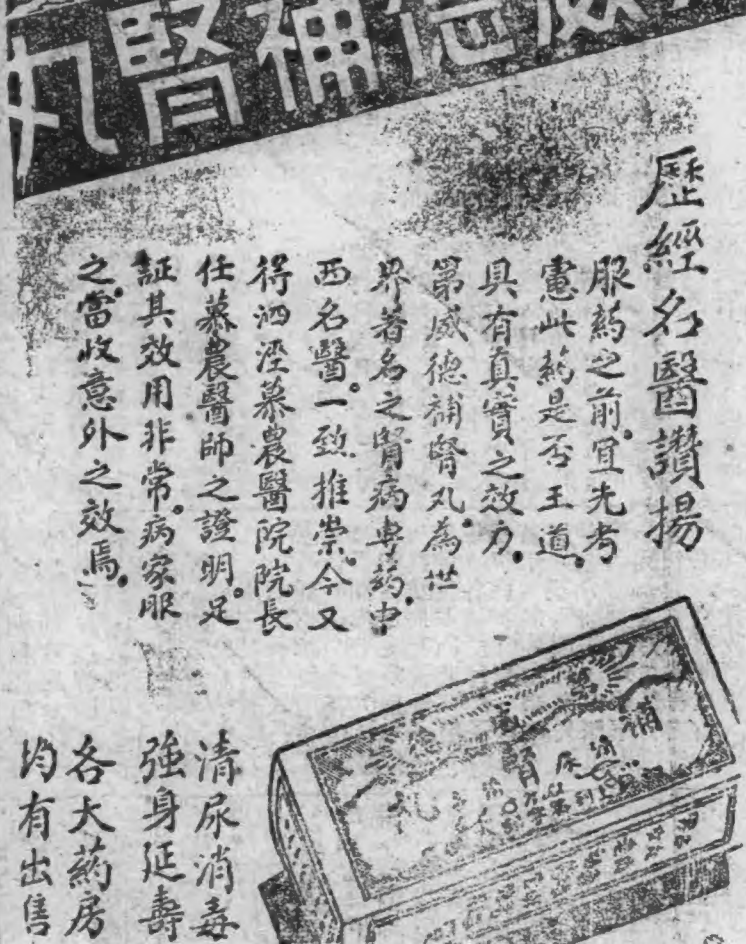 威德補腎丸
歷經名醫讚揚
服藥之前。宜先考
慮此藥是否王道。
具有真實之效力。
第威德補腎丸。為世
界著名之腎病專藥。中
西名醫。一致推崇。今又
得泗涇慕農醫院院長
任慕農醫師之證明。足
証其效用非常。病家服
之。當收意外之效焉。
清尿消毒
強身延壽
各大藥房
均有出售
補
腎
丸